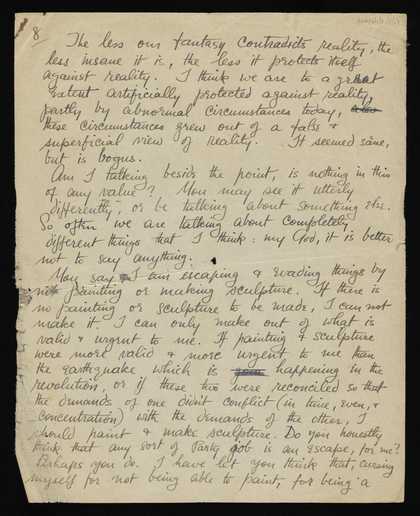 8
The less our fantasy contradicts reality, the
less insane it is, the less it protects itself
against reality. I think we are to a great
extent artificially protected against reality,
partly by abnormal circumstances today,
these circumstances grew out of a fals &
superficial view of reality. It seemed sane,
but is bogus.
Am I talking beside the point, is nothing in this
of any value? You may see it utterly
differently, or be talking about something else.
So often we are talking about completely
different things that I think: my God, it is better
not to say anything.
You say I am escaping & evading things by
not painting or making sculpture. If there is
no painting or sculpture to be made, I can not
make it. I can only make out of what is
valid & urgent to me. If painting & sculpture
were more valid & more urgent to me than
the earthquake which is happening in the
revolution, or if these two were reconciled so that
the demands of one didn't conflict (in time, even, &
concentration) with the demands of the other, I
should paint & make sculpture. Do you honestly
think that any sort of Party job is an escape, for me?
Perhaps you do. I have let you think that, cursing
myself for not being able to paint, for being a